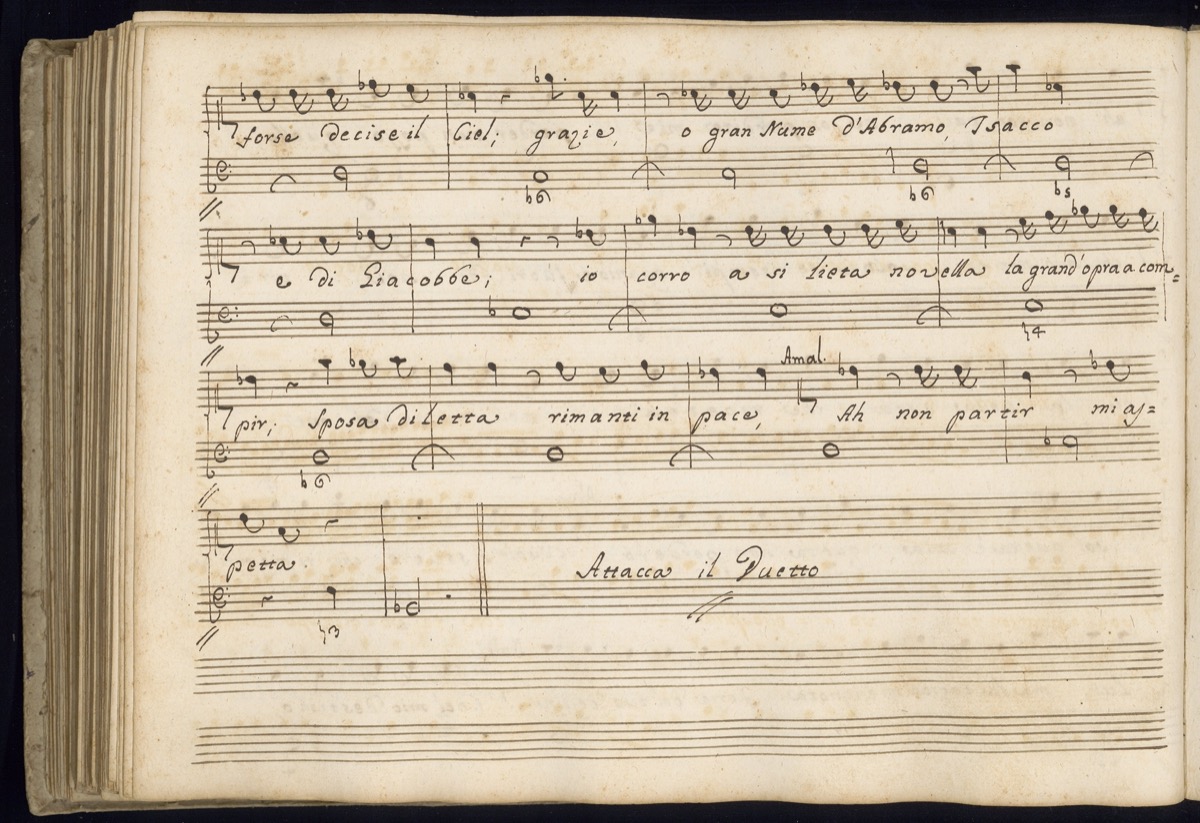 forse decise il Ciel; grazie, o gran Nume d'Abramo, Isacco
b6 b6 b5
e di Giacobbe; io corro a si lieta novella la grand'opra a com=
♮4
Amal.
pir; Sposa diletta rimanti in pace, Ah non partir mi as=
b6
petta.
Attacca il Duetto
♮3